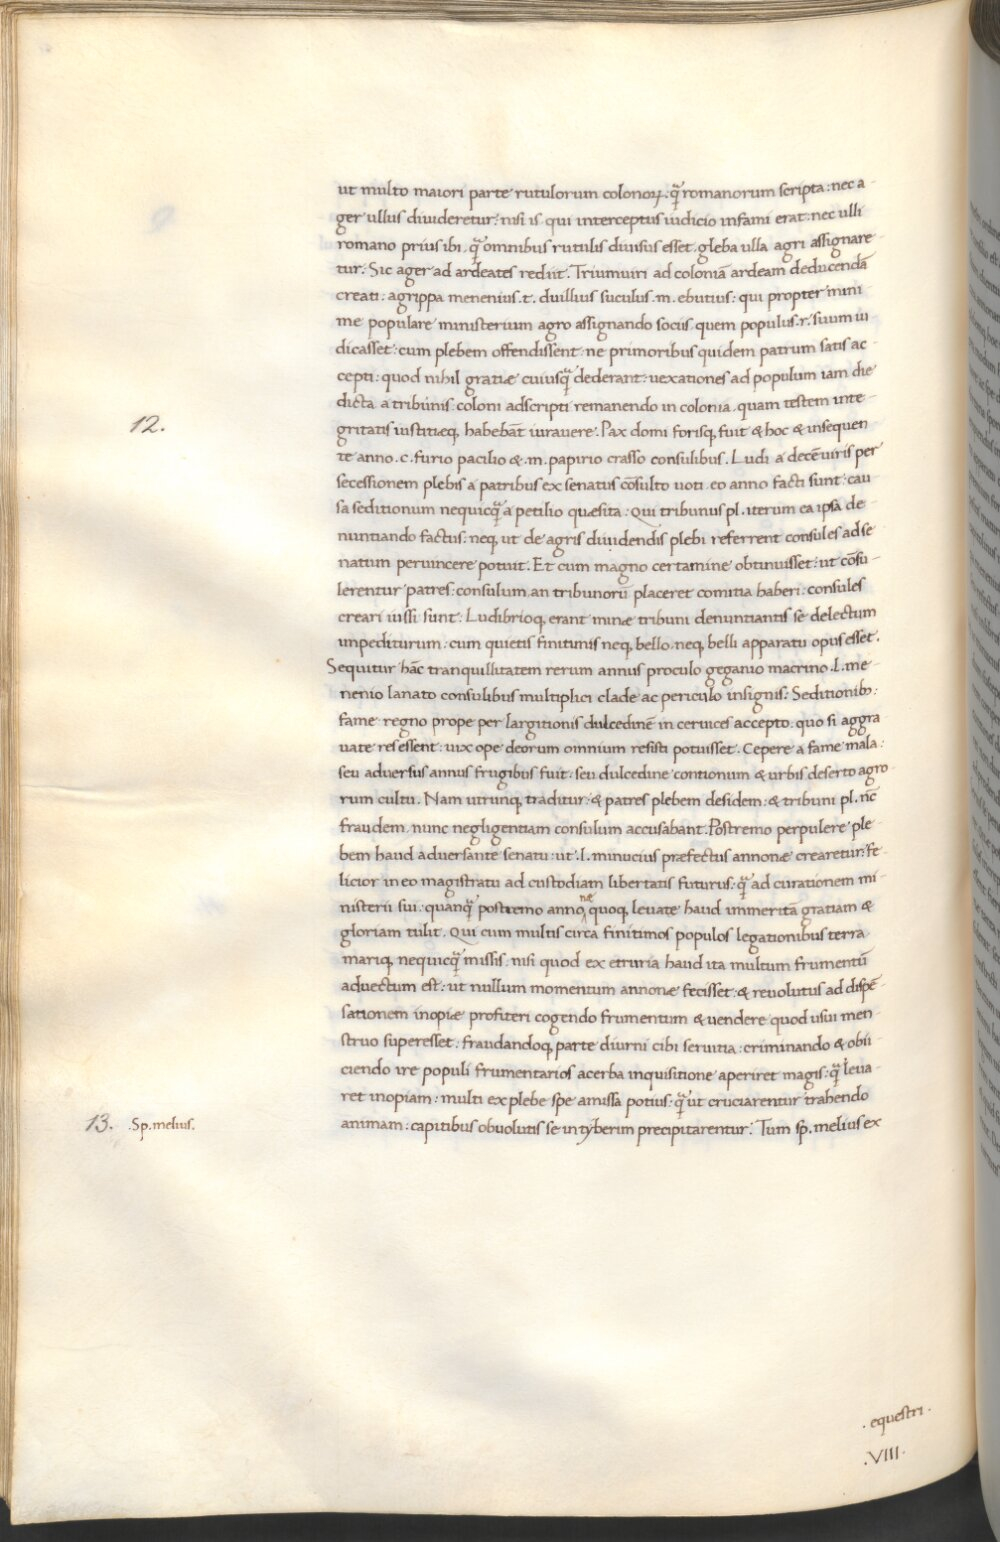 ut multo maiori parte rutulorum colonoꝝ. q̄ romanorum scripta: nec a-
ger ullus diuideretur: nisi is qui interceptus iudicio infami erat: nec ulli
romano prius ibi. q̄ omnibus rutulis diuisus esset. gleba ulla agri assignare-
tur. Sic ager ad ardeates rediit. Triumuiri ad coloniā ardeam deducendā
creati: agrippa menenius. t. duillius siculus. m. ebutius: qui propter mini-
me populare ministerium agro assignando sociis quem populus. r. suum iu-
dicasset: cum plebem offendissent: ne primoribus quidem patrum satis ac-
cepti: quod nihil gratiæ cuiusq̄ dederant: uexationes ad populum iam die
dicta a tribunis: coloni adscripti remanendo in colonia. quam testem inte-
gritatis iustitiæq; habebāt iurauere. Pax domi forisq; fuit & hoc & insequen
te anno. c. furio pacilio & .m. papirio crasso consulibus. Ludi a decēuiris per
secessionem plebis a patribus ex senatus cōsulto uoti. eo anno facti sunt: cau
sa seditionum nequicq̄ a petilio quæsita: Qui tribunus pl. iterum ea ipsa de-
nuntiando factus: neq; ut de agris diuidendis plebi referrent consules ad se
natum peruincere potuit. Et cum magno certamine obtinuisset: ut cōsu-
lerentur patres: consulum an tribunorū placeret comitia haberi: consules
creari iussi sunt: Ludibrioq; erant minæ tribuni denuntiantis se delectum
impediturum: cum quietis finitimis neq; bello. neq; belli apparatu opus esset.
Sequitur hāc tranquillitatem rerum annus proculo geganio macrino. l. me-
nenio lanato consulibus multiplici clade ac periculo insignis: Seditionib;:
fame: regno prope per largitionis dulcedinē in ceruices accepto: quo si aggra
uate res essent: uix ope deorum omnium resisti potuisset. Cepere a fame mala:
seu aduersus annus frugibus fuit: seu dulcedine contionum & urbis deserto agro-
rum cultu. Nam utrunq; traditur: & patres plebem desidem: & tribuni pl. nc̄
fraudem. nunc negligentiam consulum accusabant. Postremo perpulere ple-
bem haud aduersante senatu: ut .l. minucius præfectus annonæ crearetur: fe-
licior in eo magistratu ad custodiam libertatis futurus: q̄ ad curationem mi-
nisterii sui: quanq̄ postremo anno næ quoq; leuate haud immeritā gratiam &
gloriam tulit. Qui cum multis circa finitimos populos legationibus terra
mariq; nequicq̄ missis: nisi quod ex etruria haud ita multum frumentū
aduectum est: ut nullum momentum annonæ fecisset: & reuolutus ad dispē-
sationem inopiæ profiteri cogendo frumentum & uendere quod usui men-
struo superesset: fraudandoq; parte diurni cibi seruitia: criminando & obii
ciendo iræ populi frumentarios acerba inquisitione aperiret magis: q̄ leua-
ret inopiam: multi ex plebe spe amissa potius: q̄ ut cruciarentur trahendo
animam: capitibus obuolutis se in tyberim precipitarentur: Tum sp. melius ex
12.
13. .Sp. melius.
. equestri .
.VIII.